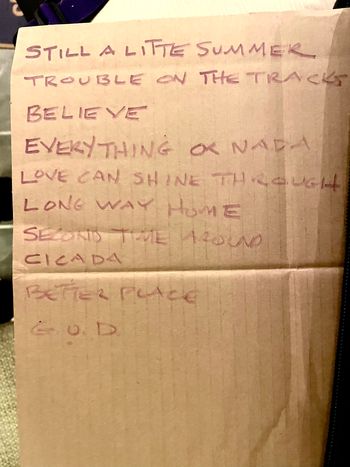 STILL A LITTE SUMMER
TROUBLE ON THE TRACKS
BELIEVE
EVERYTHING OR NADA
LOVE CAN SHINE THROUGH
LONG WAY HOME
SECOND TIME AROUND
CICADA
BETTER PLACE
G.O.D.